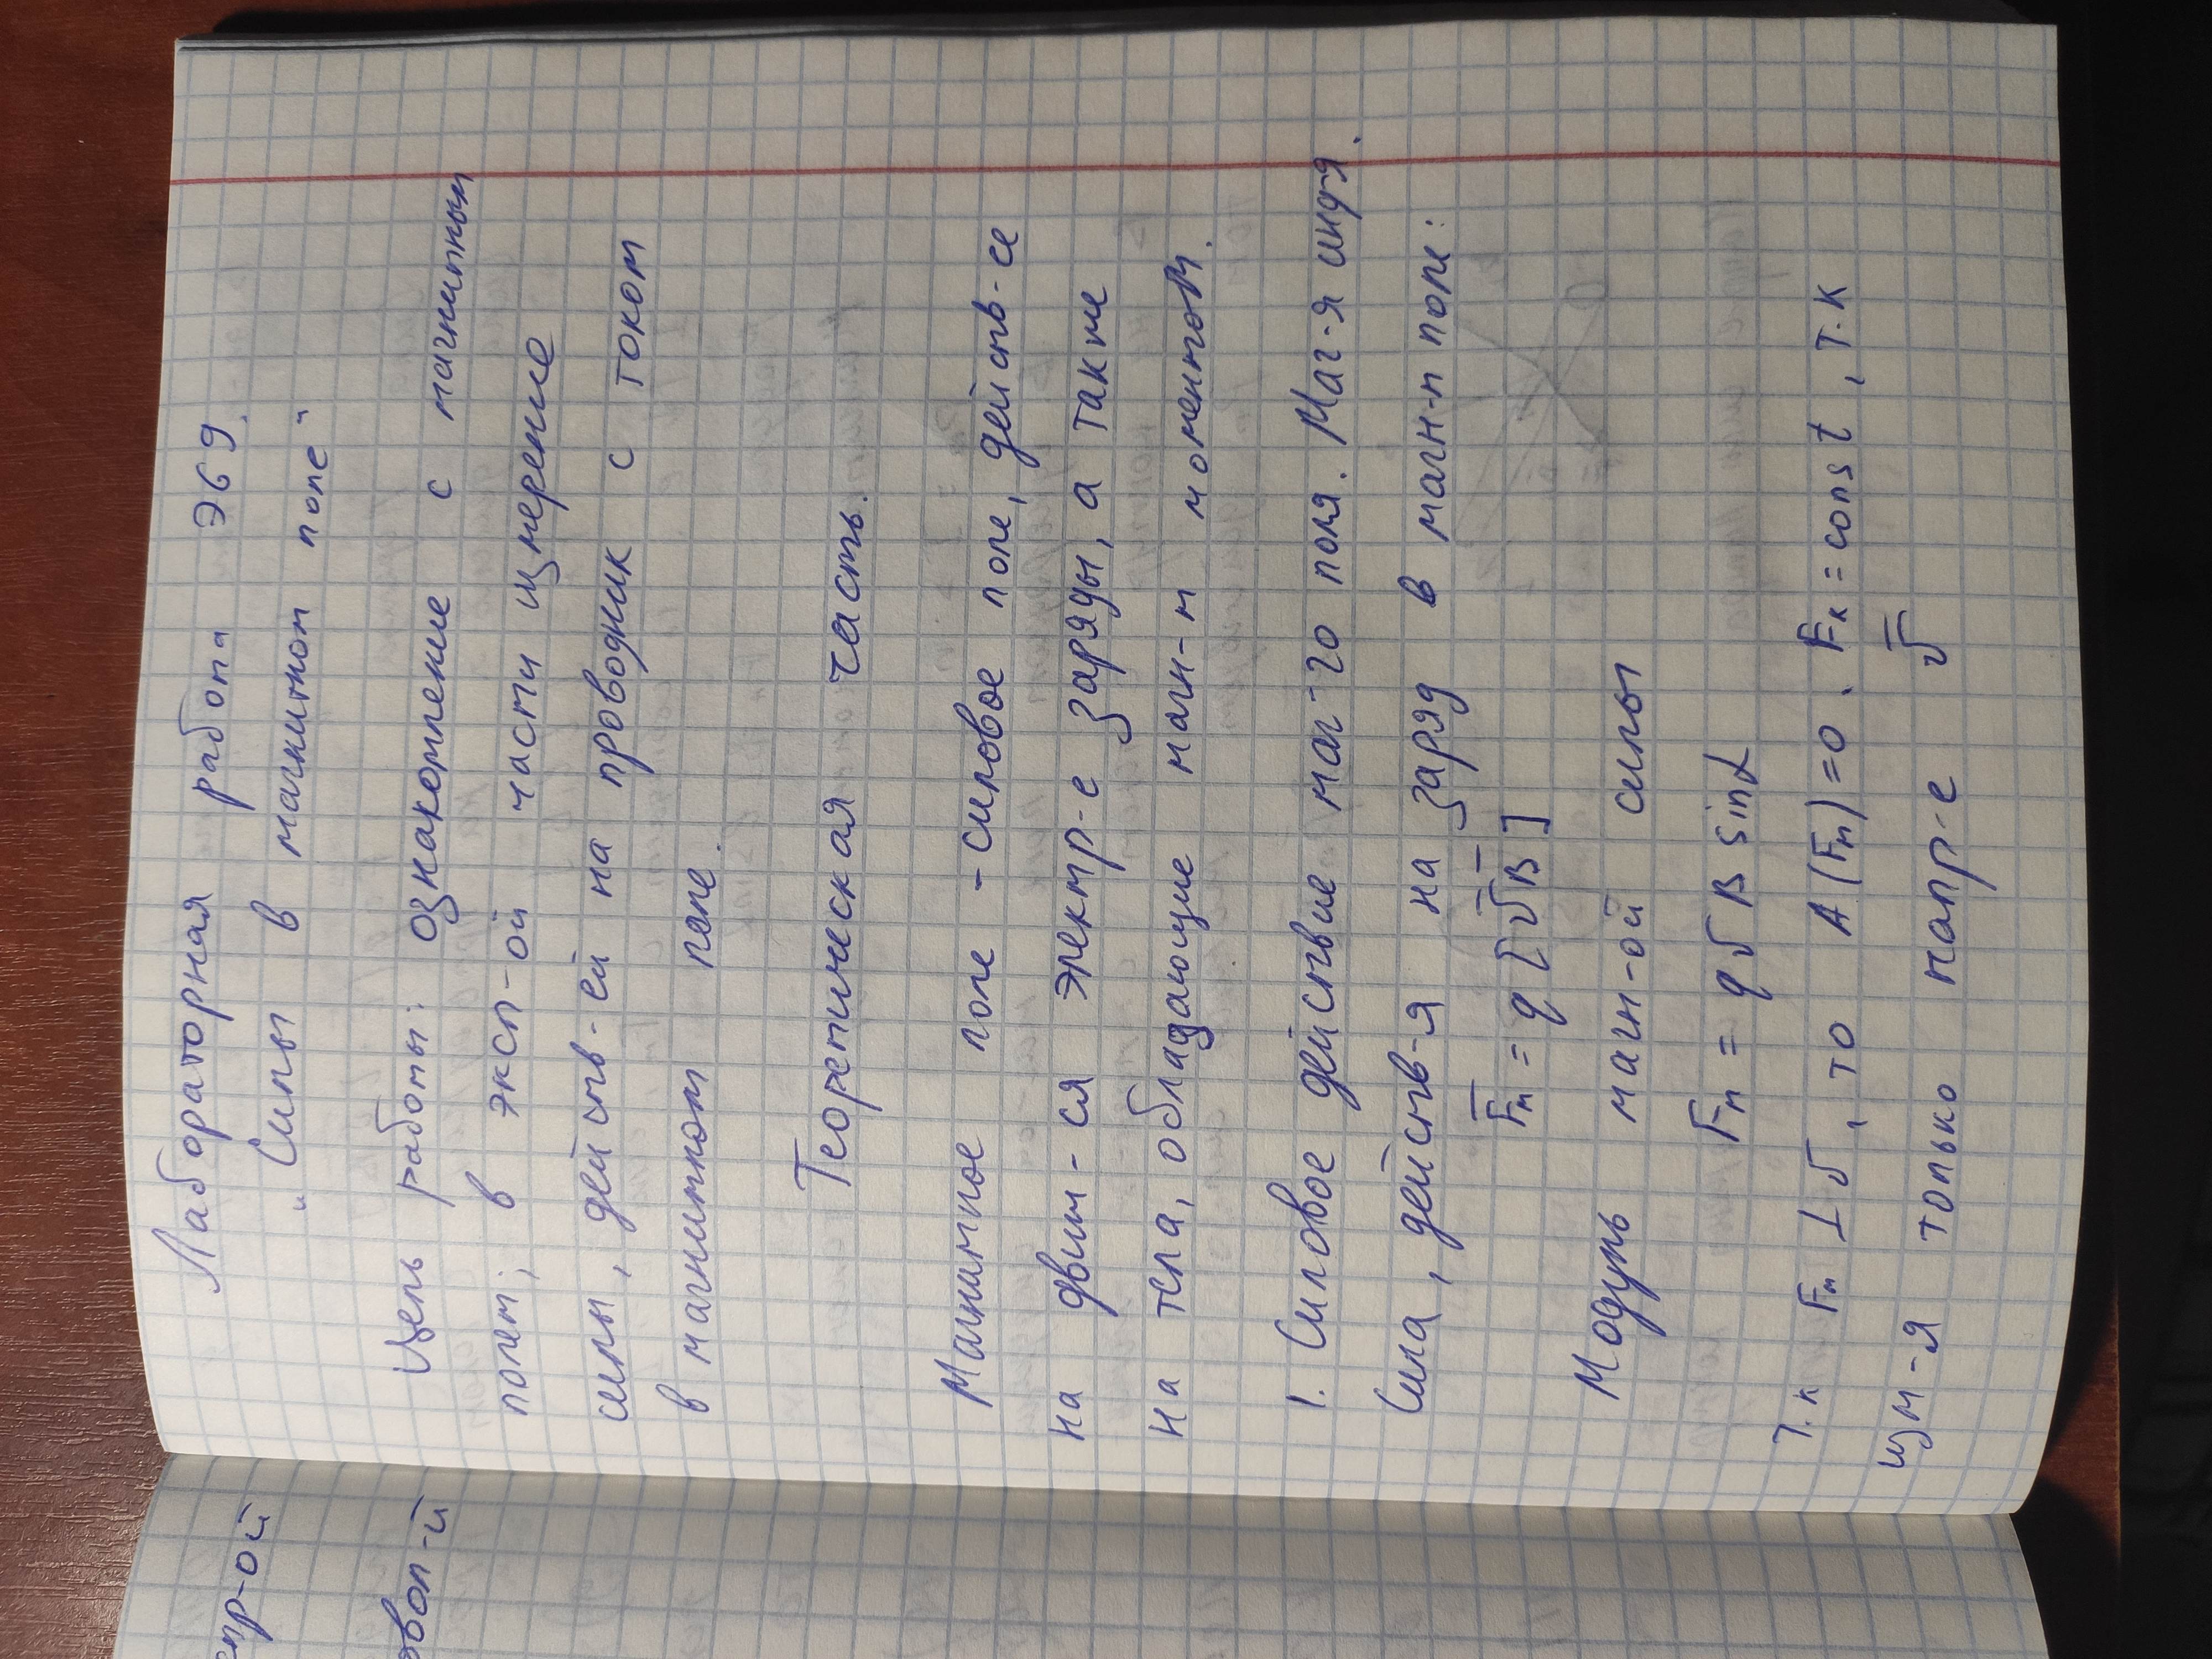 спр-ой
овол-й
Лабораторная работа Э69.
„Силы в магнитном поле“
Цель работы: ознакомление с магнитным
полем; в эксп-ой части измерение
силы, действ-ей на проводник с током
в магнитном поле.
Теоретическая часть.
Магнитное поле - силовое поле, действ-ее
на движ-ся электр-е заряды, а также
на тела, обладающие магн-м моментом.
1. Силовое действие маг-го поля. Маг-я инд-я.
Сила, действ-я на заряд в магн-м поле:
F̅ₘ = q [v̅ B̅]
Модуль магн-ой силы
Fₘ = q v B sinα
Т.к Fₘ ⊥ v, то A(Fₘ)=0. Eₖ = const, т.к
изм-я только напр-е v̅